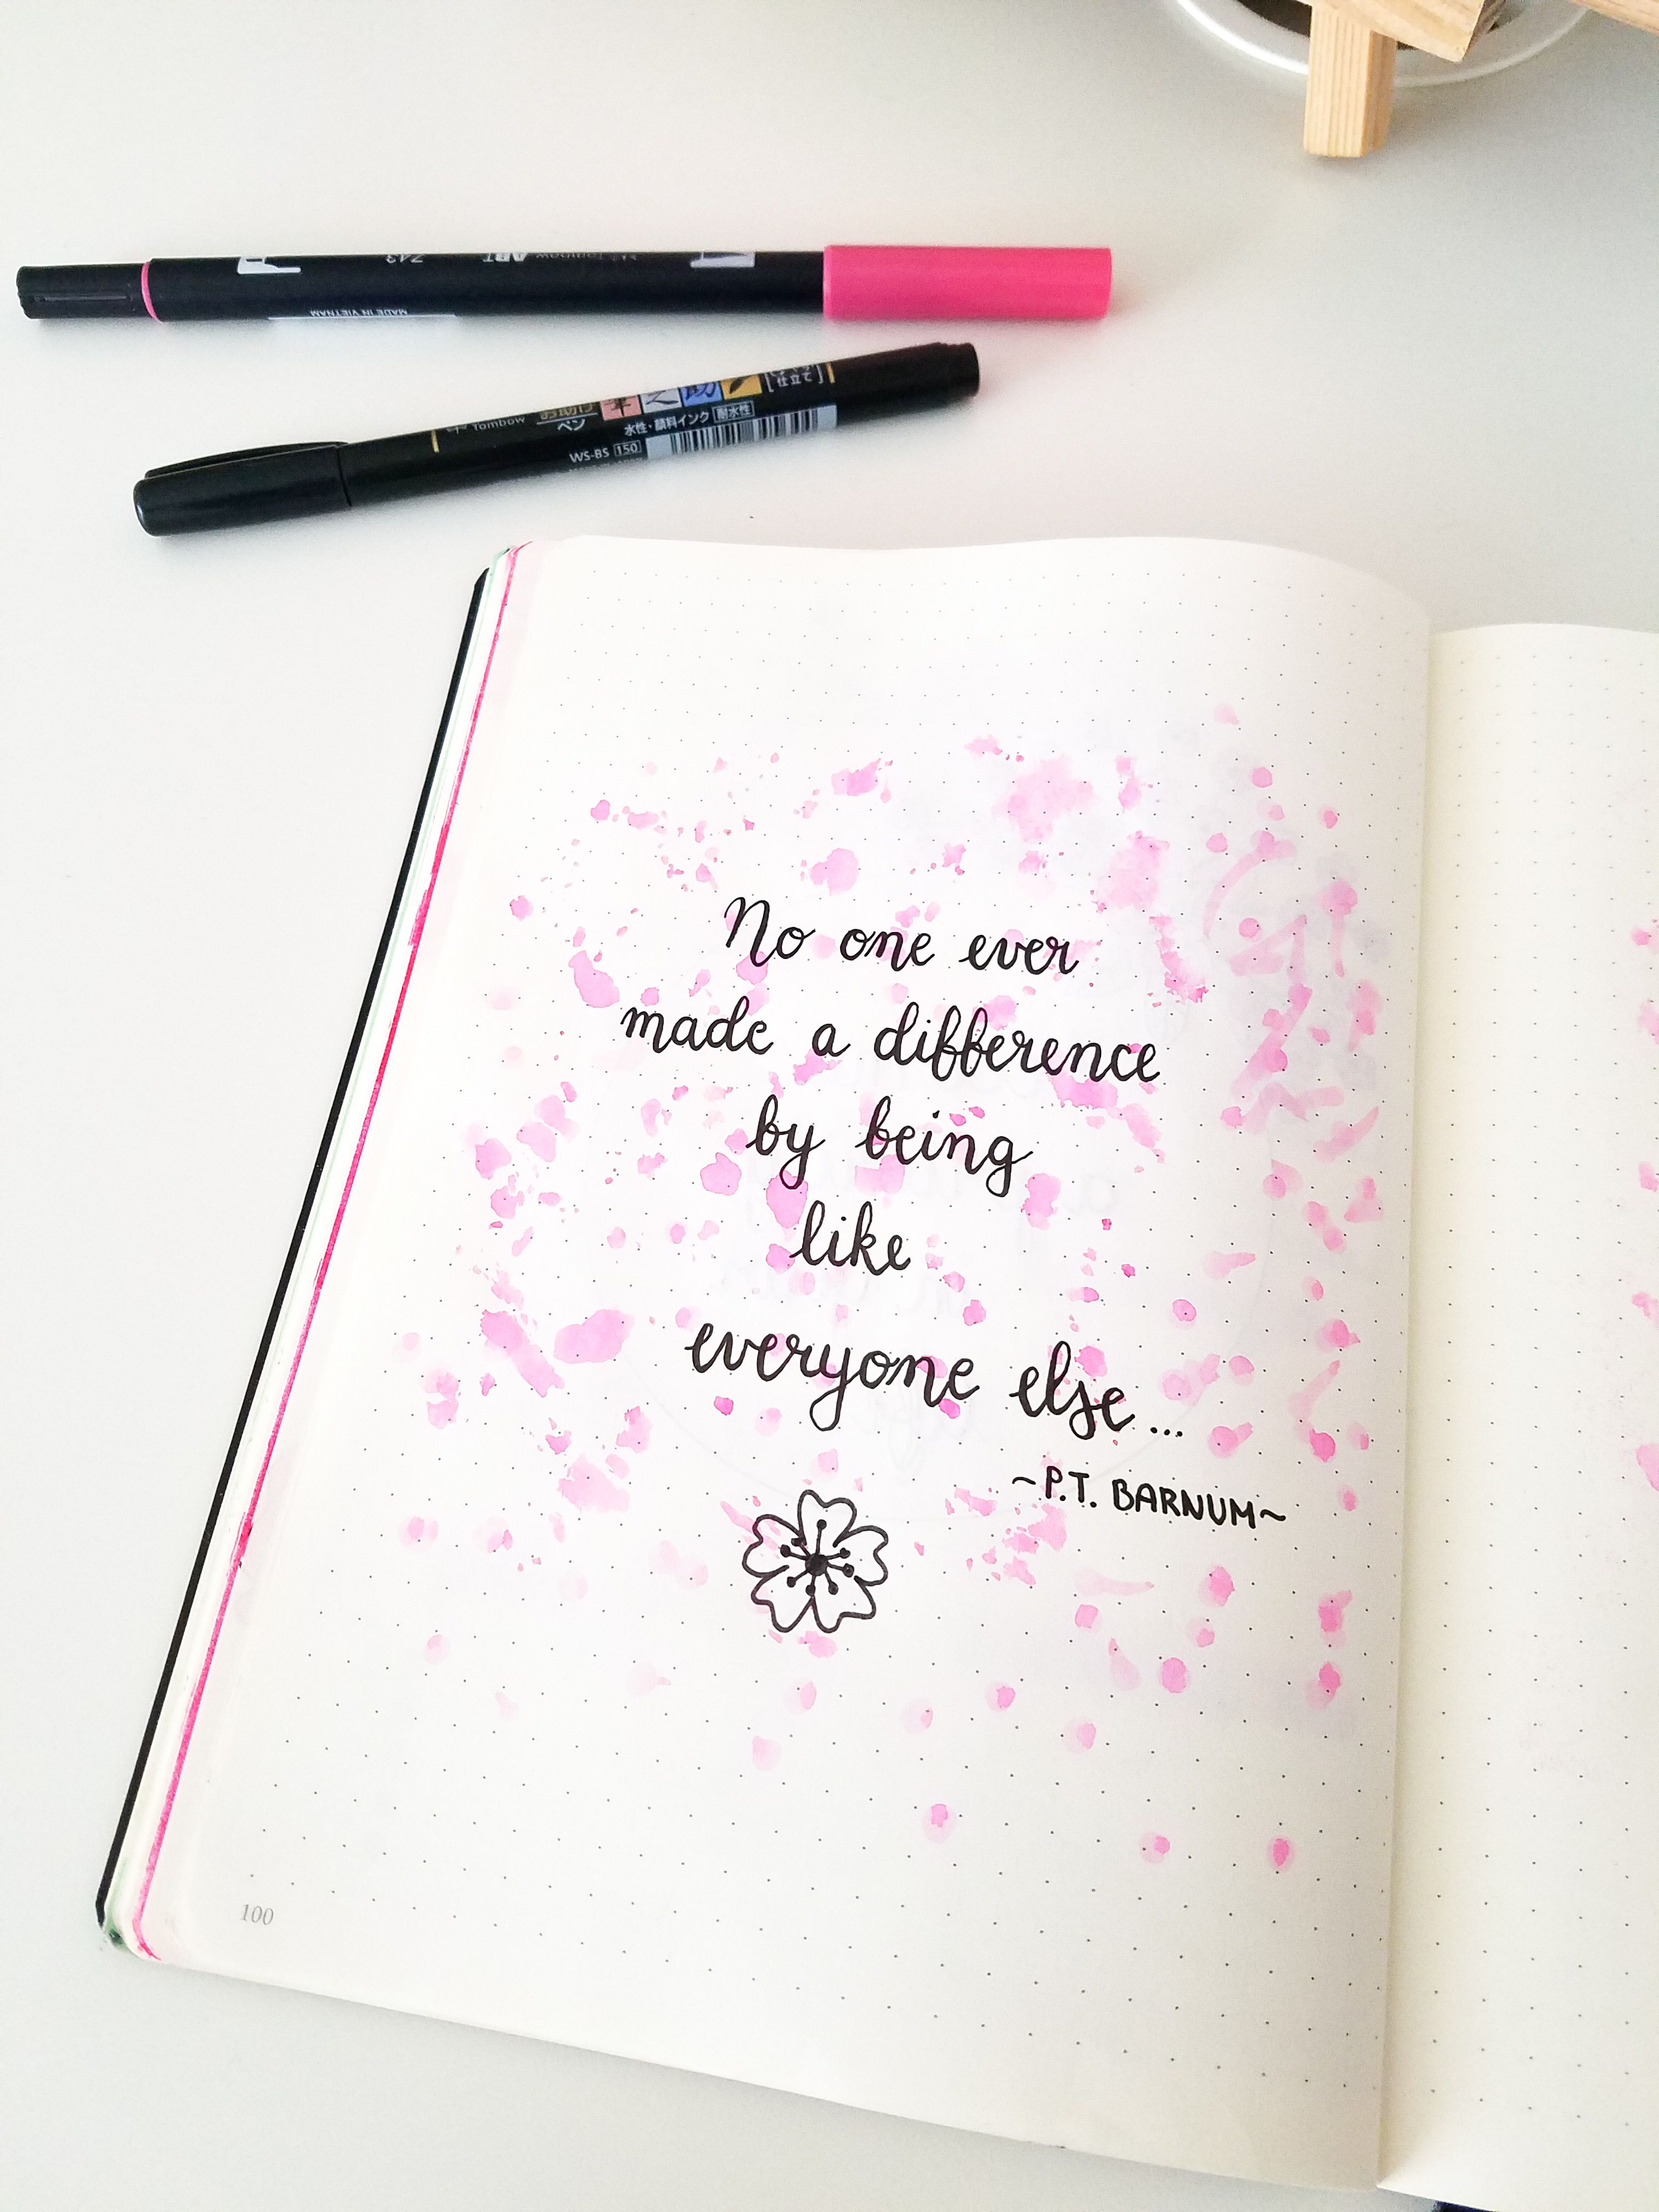 743 ABT Tombow
MADE IN VIETNAM
Tombow お助け ペン 筆之助 [しっかり仕立て]
水性・顔料インク 耐水性
WS-BS 150
No one ever
made a difference
by being
like
everyone else...
~P.T. BARNUM~
100